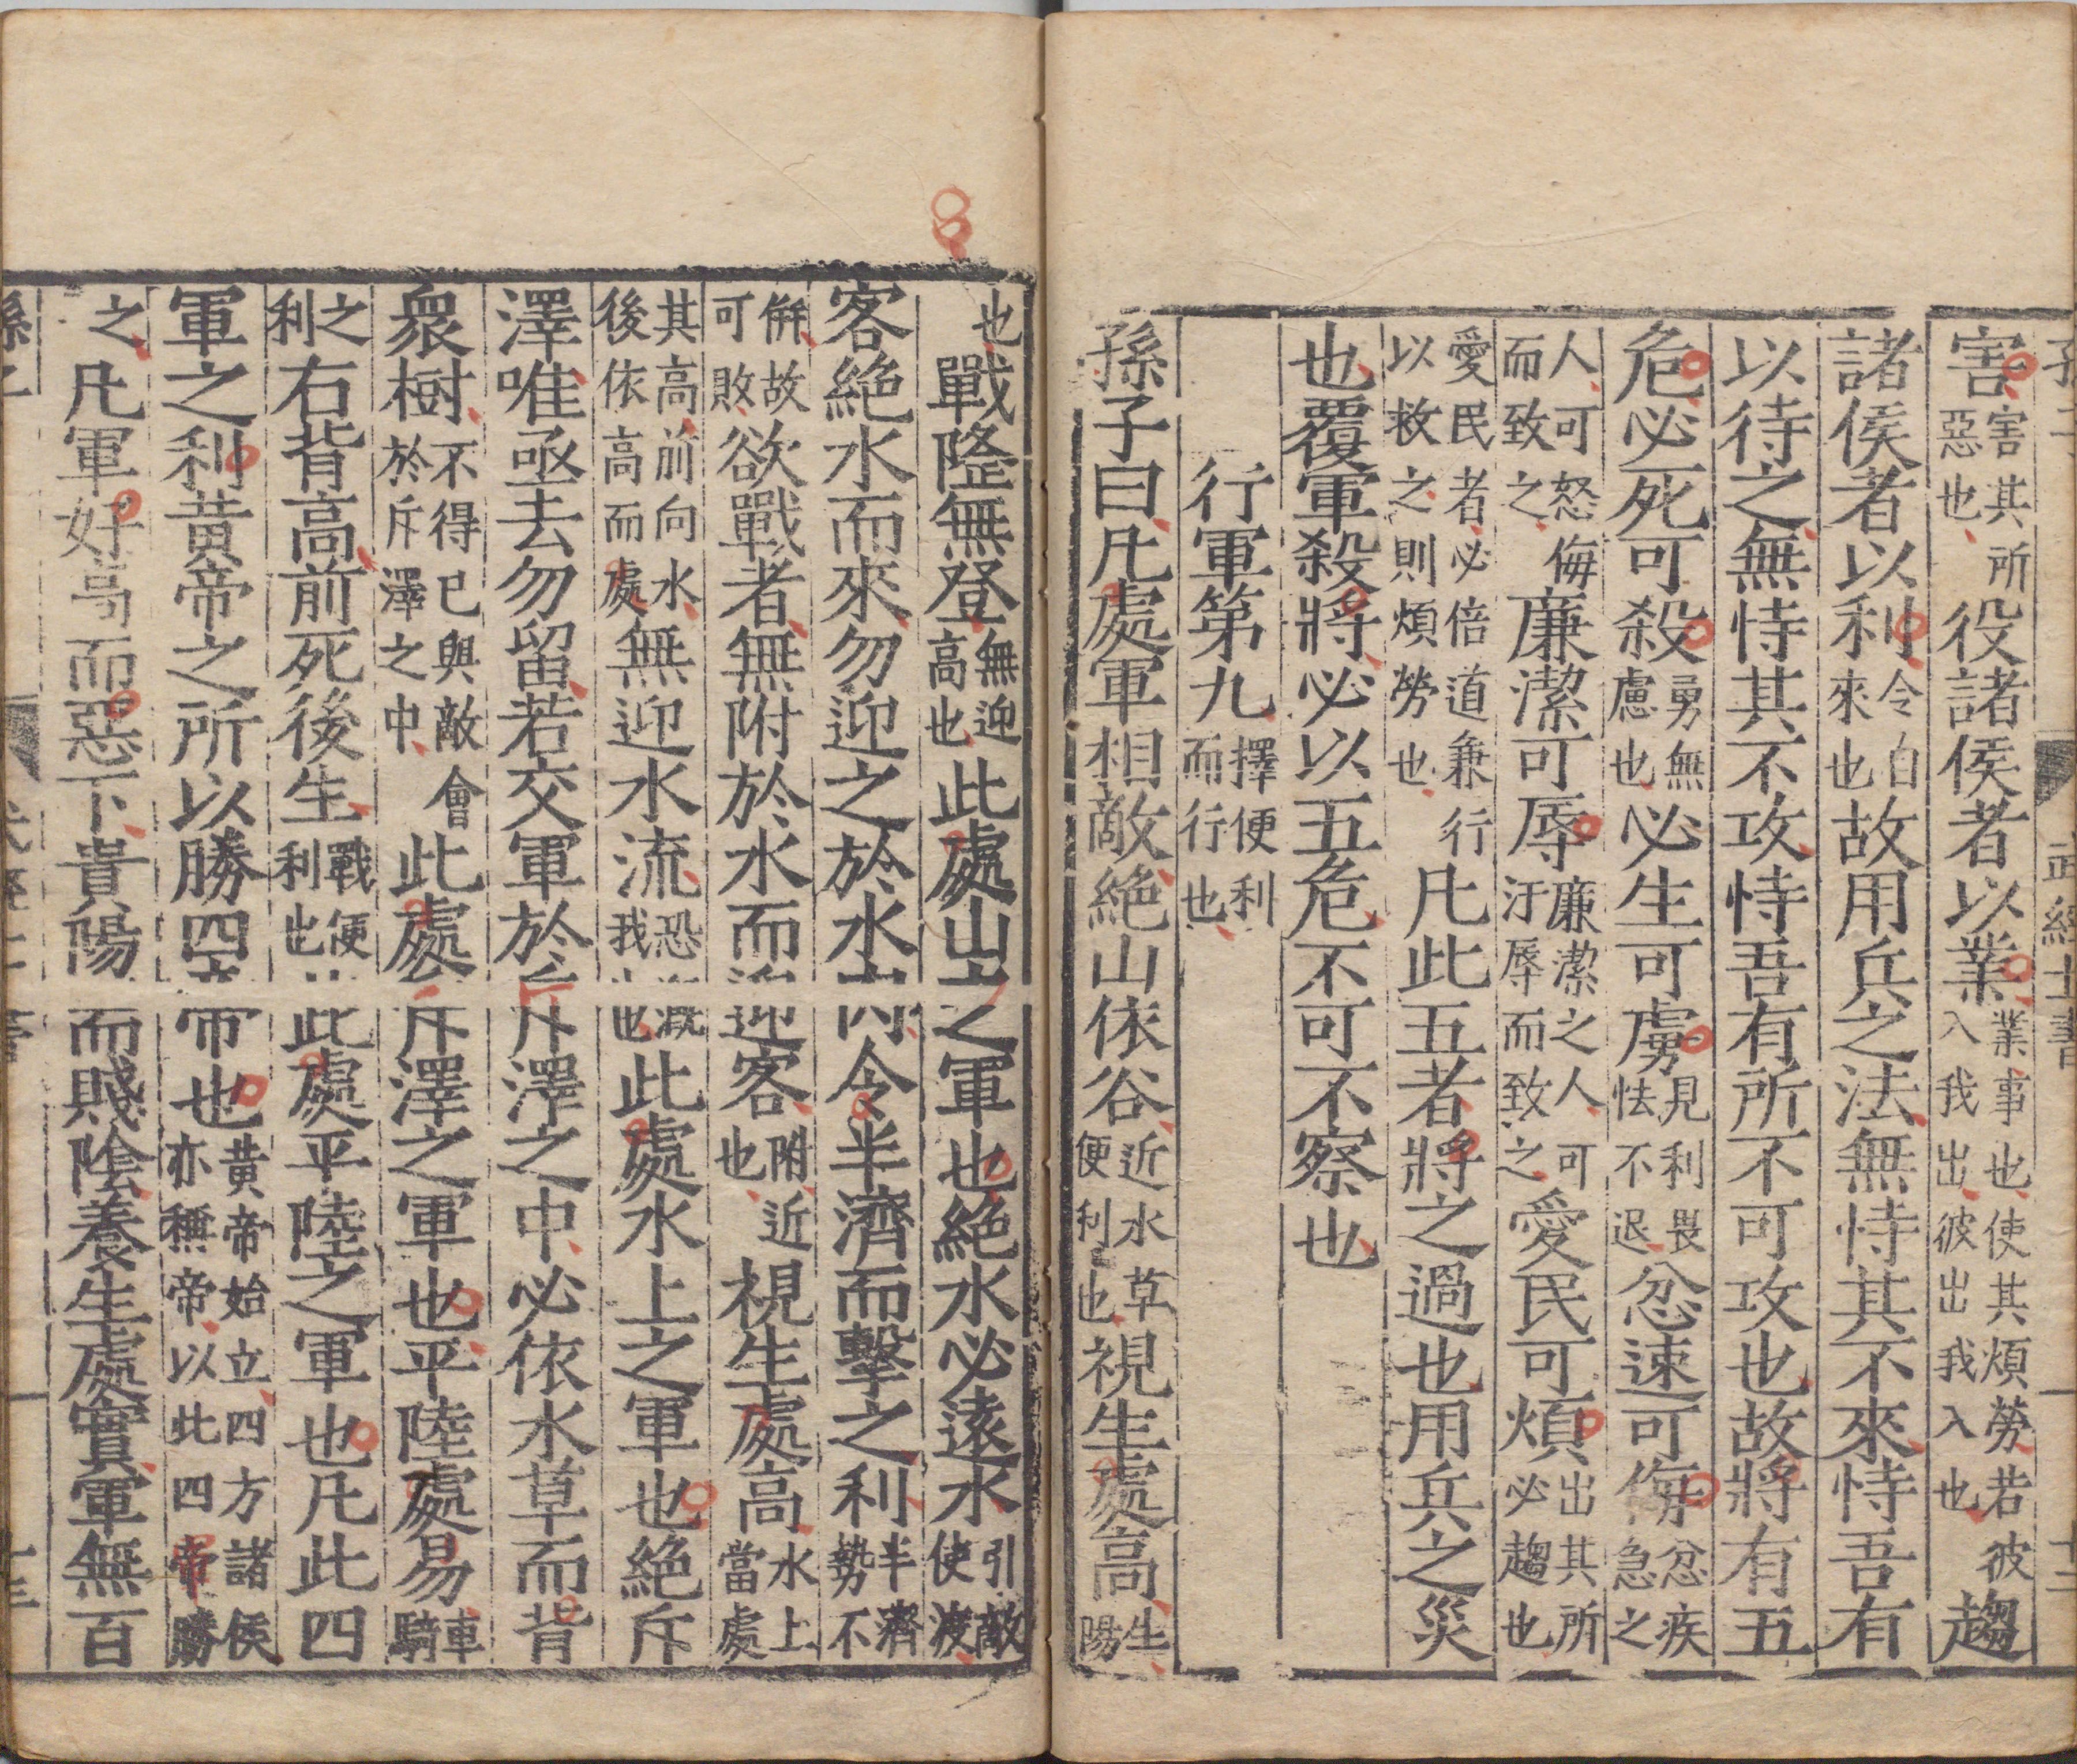 害害其所惡也役諸侯者以業業事也使其煩勞若彼入我出彼出我入也趨
諸侯者以利令自來也故用兵之法無恃其不來恃吾有
以待之無恃其不攻恃吾有所不可攻也故將有五
危必死可殺勇無慮也必生可虜見利畏怯不退忿速可侮忿疾急之
人可怒侮而致之廉潔可辱廉潔之人可汙辱而致之愛民可煩出其所必趨也
愛民者必倍道兼行以救之則煩勞也凡此五者將之過也用兵之災
也覆軍殺將必以五危不可不察也
行軍第九擇便利而行也
孫子曰凡處軍相敵絶山依谷近水草便利也視生處高生陽
也戰隆無登無迎高也此處山之軍也絶水必遠水引敵使渡
客絶水而來勿迎之於水內令半濟而擊之利半濟勢不
併故可敗欲戰者無附於水而迎客附近也視生處高水上當處
其高前向水後依高而處無迎水流恐溉我也此處水上之軍也絶斥
澤唯亟去勿留若交軍於斥澤之中必依水草而背
衆樹不得已與敵會於斥澤之中此處斥澤之軍也平陸處易車騎
之利右背高前死後生戰便利也此處平陸之軍也凡此四
軍之利黃帝之所以勝四帝也黃帝始立四方諸侯亦稱帝以此四帝勝
之凡軍好高而惡下貴陽而賤陰養生處實軍無百